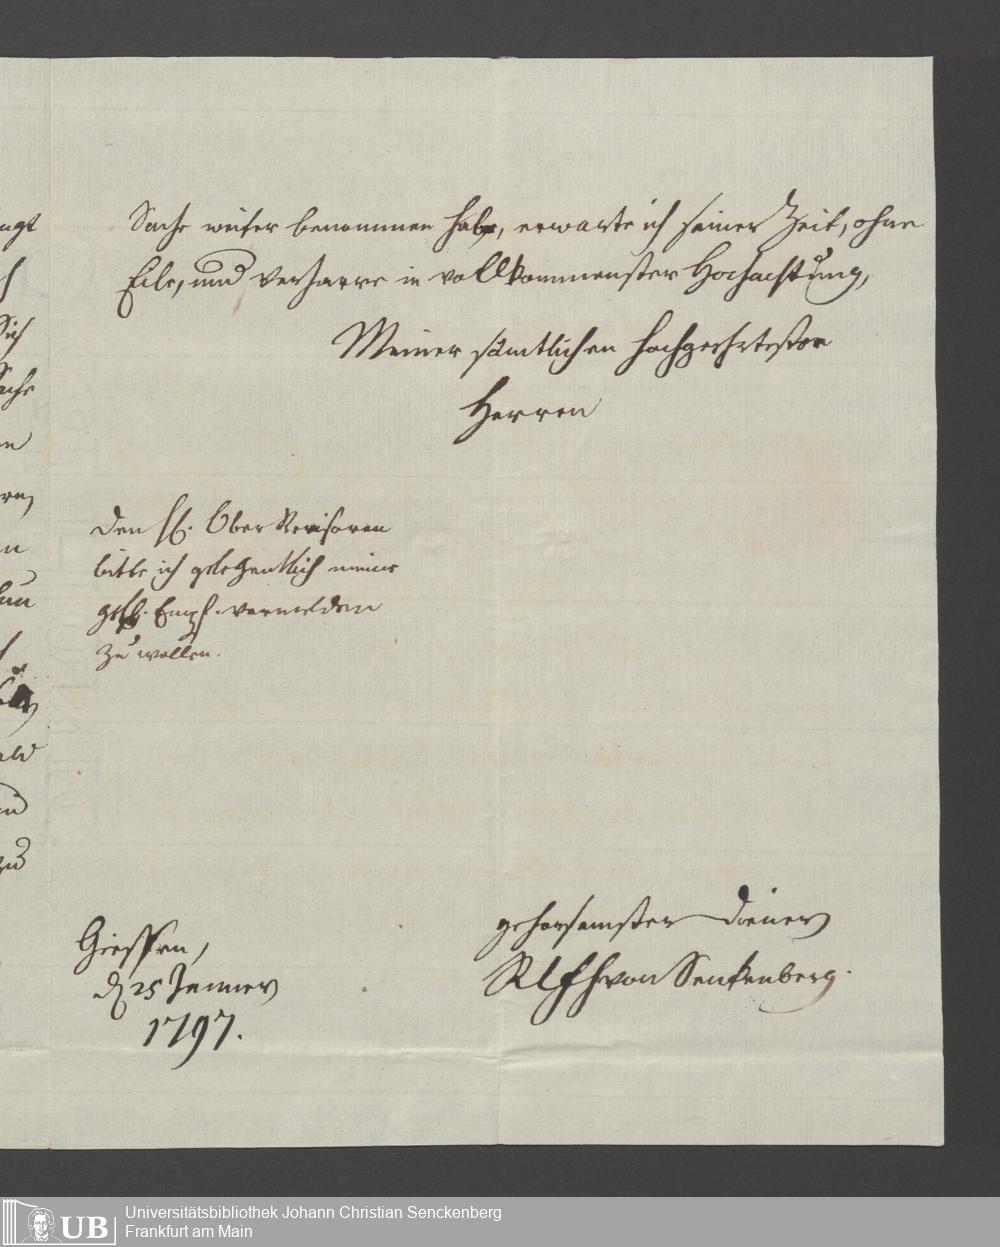 Sache weiter benommen habe, erwarte ich seiner Zeit, ohne
Eile, und verharre in vollkommenster Hochachtung,
Meiner sämtlichen hochgeehrtesten
Herren
den H. Ober Revisoren
bitte ich gelegentlich meine
Empf. vermelden
zu wollen.
Giessen,
d 25 Jenner
1797.
gehorsamster Diener
von Senkenberg.
ch
Sich
Sache
en
ern,
en
und
zu
UB
Universitätsbibliothek Johann Christian Senckenberg
Frankfurt am Main